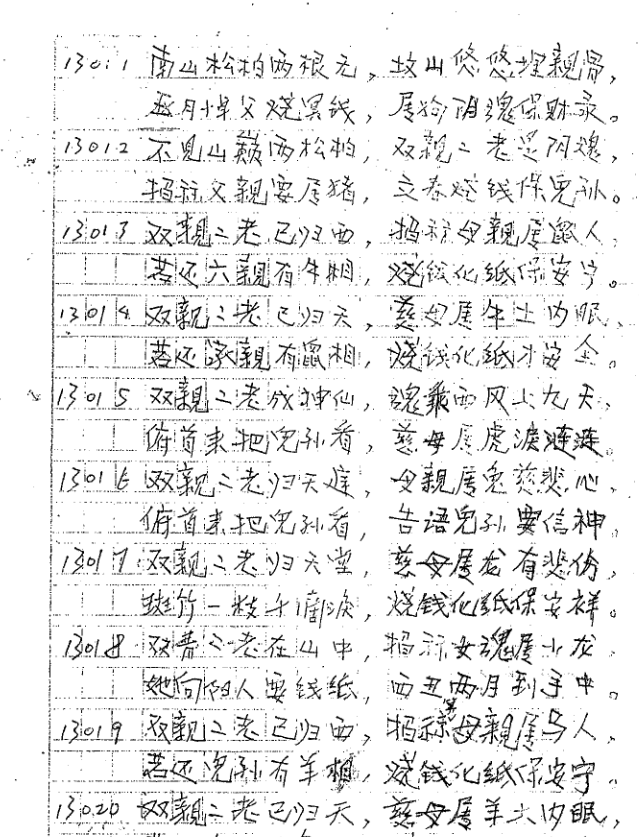 13011 南山松柏两根无，故山悠悠埋亲骨，
月悼父烧冥钱，属狗阴魂保财录。
13012 不见山巅两松柏，双親二老是阴魂，
招称父親要属猪，立春烧钱保兒孙。
13013 双親二老已归西，招称母親属鼠人，
若还六親有牛相，烧钱化纸保安宁。
13014 双親二老已归天，慈母属牛土内眠，
若还親有鼠相，烧钱化纸才安全。
13015 双親二老成神仙，魂乘西风上九天，
俯首来把兒孙看，慈母属虎淚涟涟。
13016 双親二老归天庭，母親属兔慈悲心，
俯首来把兒孙看，告语兒孙要信神。
13017 双親二老归天堂，慈母属龙有悲伤，
斑竹一枝千滴淚，烧钱化纸保安祥。
13018 双二老在山中，招称女魂属小龙，
她向阳人要钱纸，酉丑两月到手中。
13019 双親二老已归西，招称母親属马人，
若还兒孙有羊相，烧钱化纸保安宁。
13020 双親二老已归天，慈母属羊土内眠，